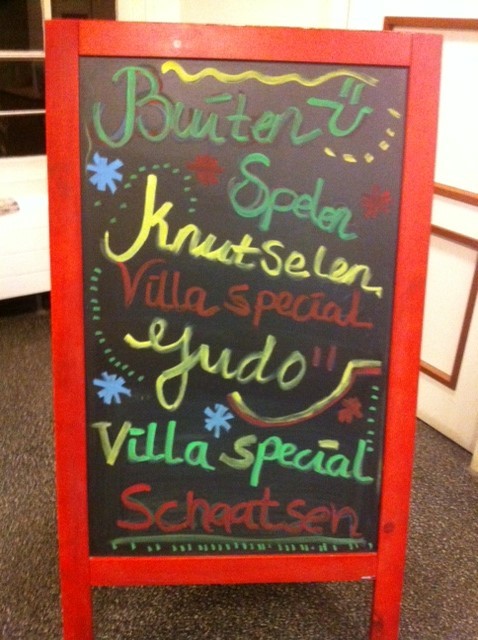 Buiten
Spelen
Knutselen
Villa special
Yudo
Villa special
Schaatsen